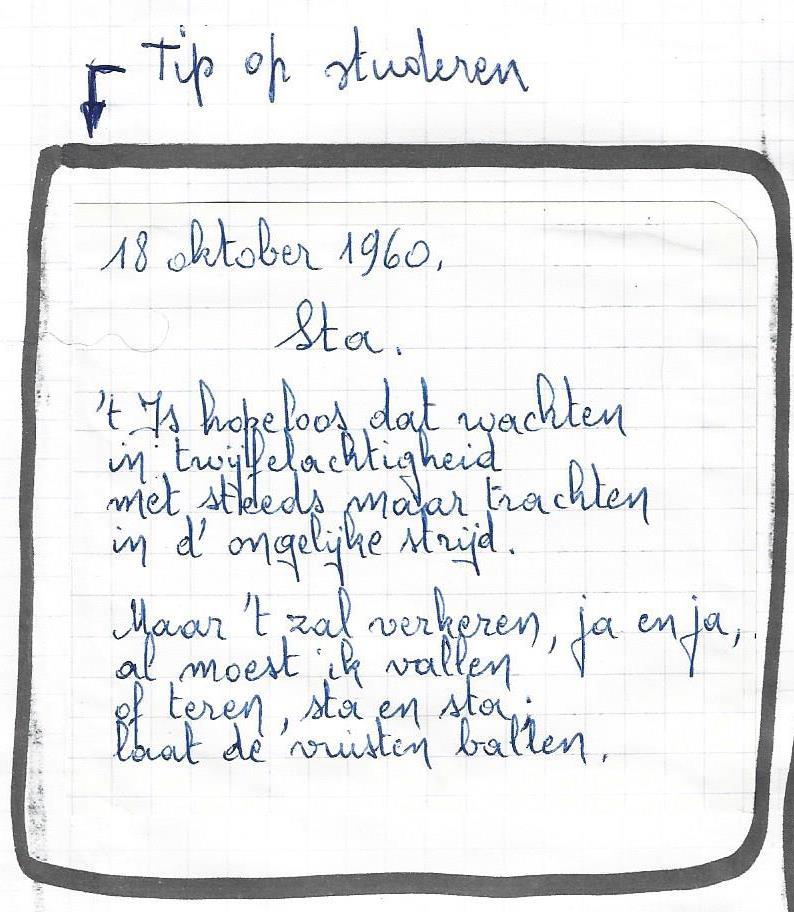 Tip op studeren
18 oktober 1960.
Sta.
't Is hopeloos dat wachten
in twijfelachtigheid
met steeds maar trachten
in d' ongelijke strijd.
Maar 't zal verkeren, ja en ja,
al moest ik vallen
of teren, sta en sta;
laat de vuisten ballen.